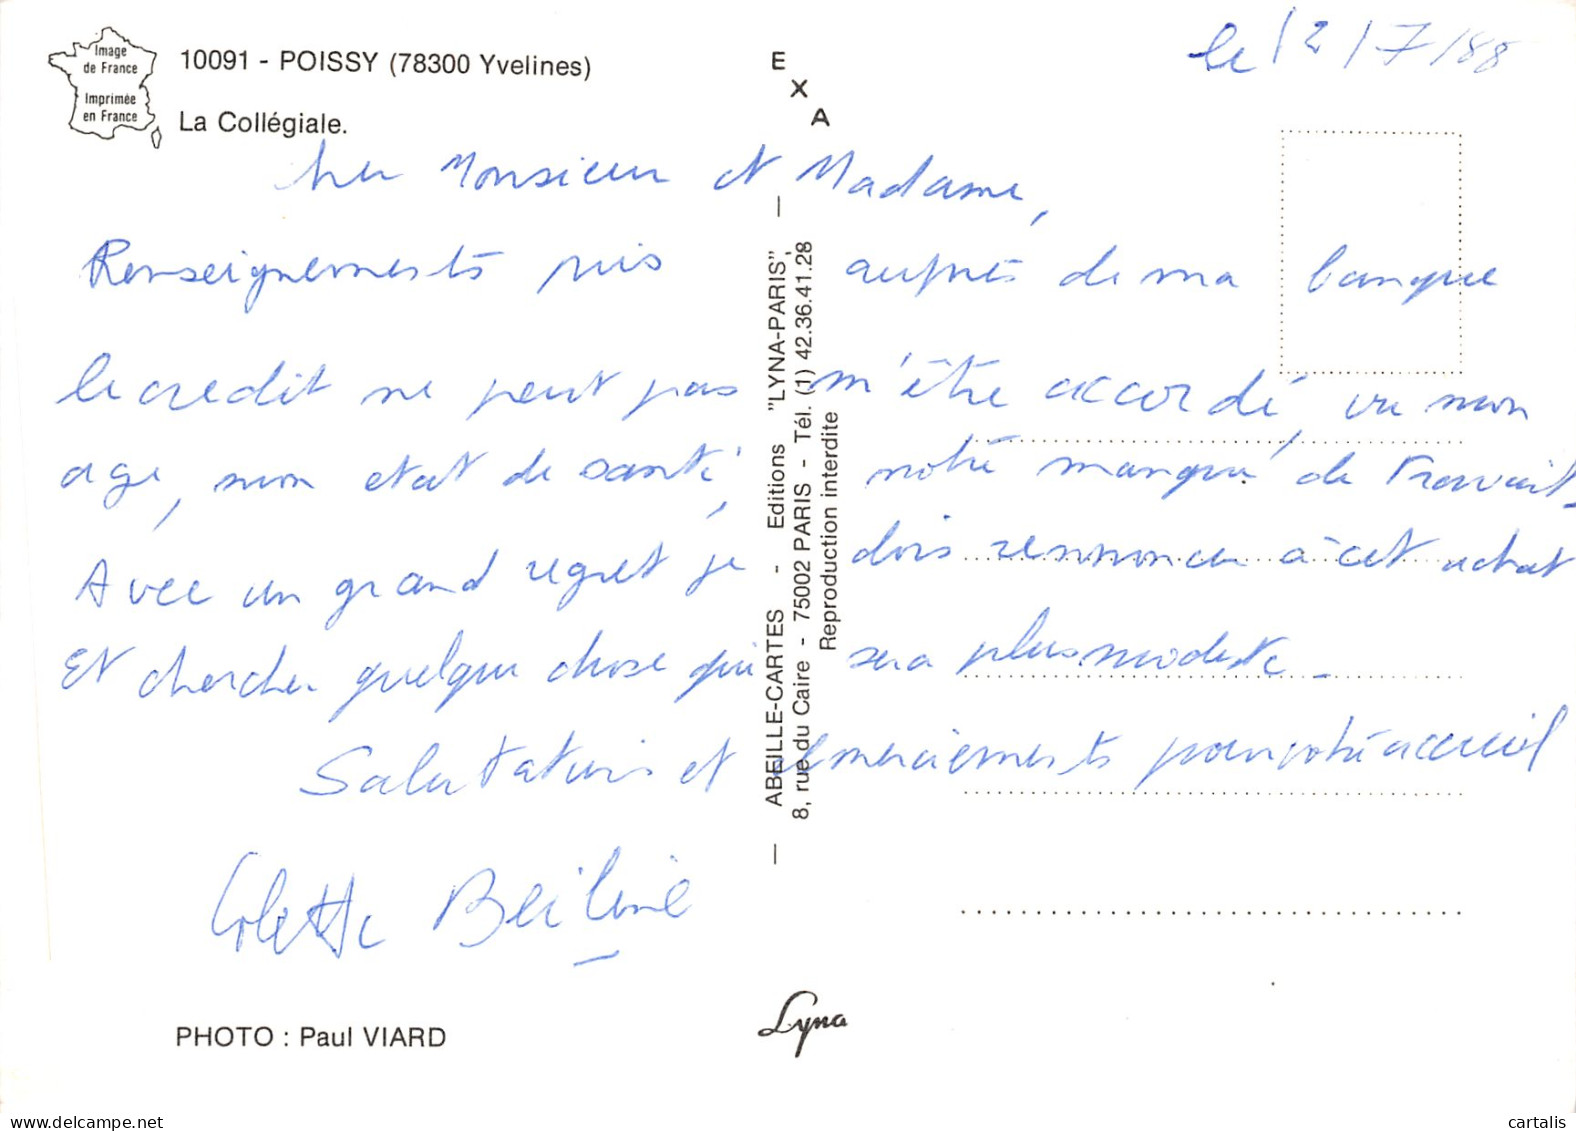 Image
de France
Imprimée
en France
10091 - POISSY (78300 Yvelines)
La Collégiale.
E
X
A
le 12/7/88
cher Monsieur et Madame,
Renseignements pris auprès de ma banque
le credit ne peut pas m'être accordé, vu mon
age, mon etat de santé, notre manque de travail.
Avec un grand regret je dois renoncer à cet achat
Et chercher quelque chose qui sera plus modeste.
Salutations et remerciements pour votre accueil
Colette
ABEILLE-CARTES - Editions "LYNA-PARIS",
8, rue du Caire - 75002 PARIS - Tél. (1) 42.36.41.28
Reproduction interdite
PHOTO : Paul VIARD
Lyna
www.delcampe.net
cartalis